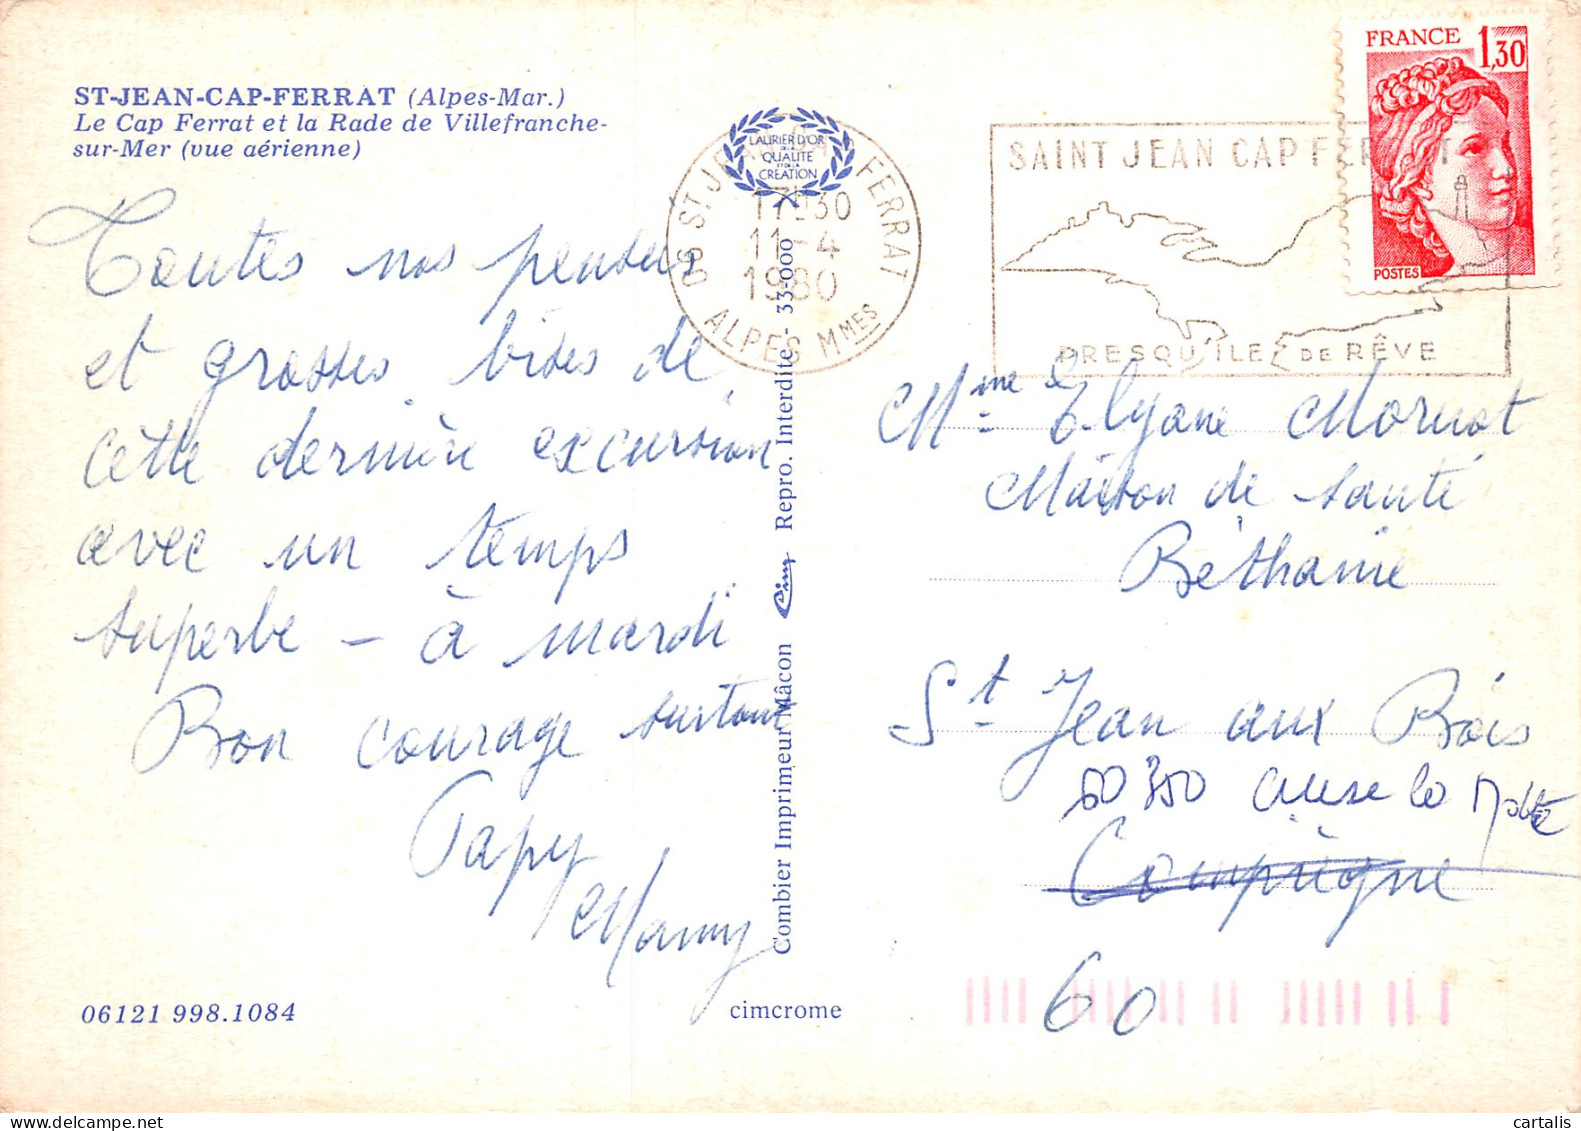 ST-JEAN-CAP-FERRAT (Alpes-Mar.)
Le Cap Ferrat et la Rade de Villefranche-
sur-Mer (vue aérienne)
Toutes nos pensées
et grosses bises de
cette dernière excursion
avec un temps
superbe – à mardi
Bon courage surtout
Papy
Mamy
06121 998.1084
cimcrome
Combier Imprimeur Mâcon Cim Repro. Interdite - 33-000
LAURIER D'OR
DE LA
QUALITÉ
ET DE LA
CRÉATION
06 ST JEAN CAP FERRAT
17H30
11-4
1980
ALPES MMES
SAINT JEAN CAP FERRAT
PRESQU'ILE DE RÊVE
FRANCE 1,30
POSTES
Mme Elyane Mornot
Maison de santé
Béthanie
St Jean aux Bois
60350 Cuise la Motte
Compiègne
60